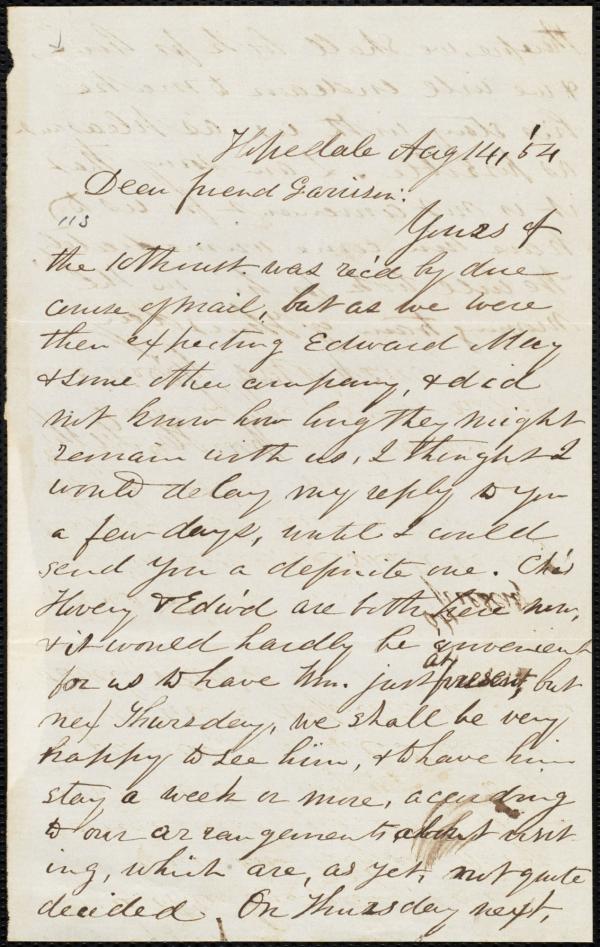 Hopedale Aug 14, '54
Dear friend Garrison:
Yours of
the 10th inst. was rec'd by due
course of mail, but as we were
then expecting Edward May
& some other company, & did
not know how long they might
remain with us, I thought I
would delay my reply to you
a few days, until I could
send you a definite one. Ch's
Hovey & Edw'd are both here now,
& it would hardly be convenient
for us to have Wm. just at present, but
next Thursday, we shall be very
happy to see him, & to have him
stay a week or more, according
to our arrangements about visit
ing, which are, as yet, not quite
decided. On Thursday next,